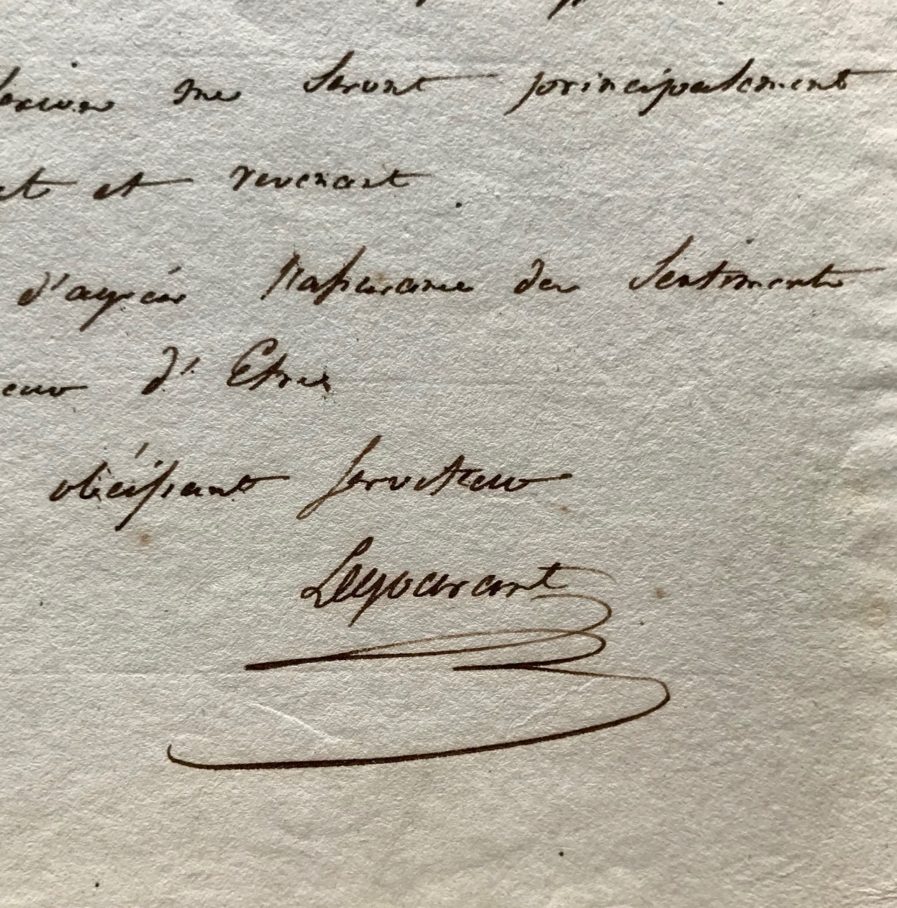 me seront principalement
et revenant
d'agréer l'assurance des Sentiments
d'Etre
obéissant serviteur
Legouarant